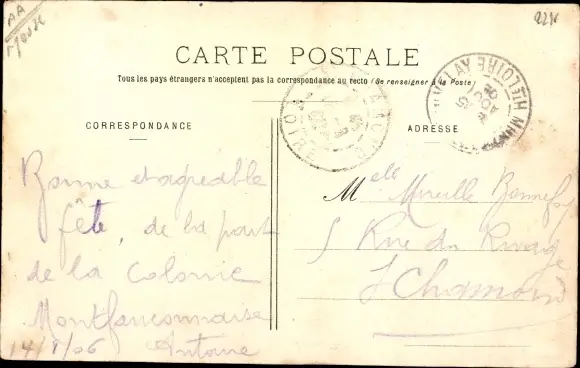 AA
2276
CARTE POSTALE
Tous les pays étrangers n'acceptent pas la correspondance au recto (Se renseigner à la Poste)
CORRESPONDANCE
ADRESSE
Bonne et agréable
fête, de la part
de la Colonie
Montfauconnaise
14/8/06 Antoine
Melle Mireille Bonnefoy
5 Rue du Rivage
St Chamond
HTE LOIRE